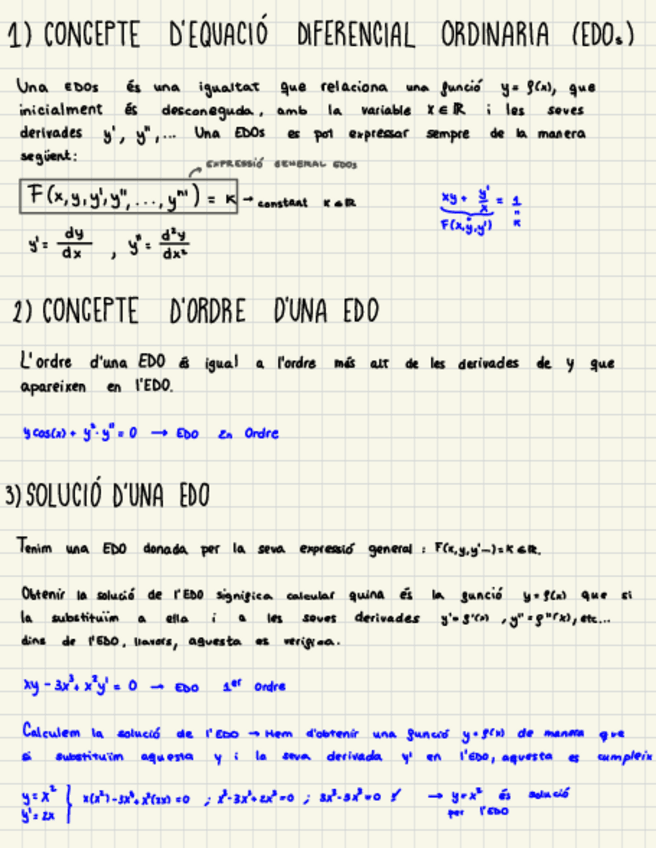 1) CONCEPTE D'EQUACIÓ DIFERENCIAL ORDINARIA (EDOs)
Una EDOs és una igualtat que relaciona una funció y=f(x), que
inicialment és desconeguda, amb la variable x∈ℝ i les seves
derivades y', y'',... Una EDOs es pot expressar sempre de la manera
següent:
EXPRESSIÓ GENERAL EDOs
F(x,y,y',y'',...,yⁿ') = K → constant K∈ℝ
xy + y'/x = 1
F(x,y,y') " K
y' = dy/dx , y'' = d²y/dx²
2) CONCEPTE D'ORDRE D'UNA EDO
L'ordre d'una EDO és igual a l'ordre més alt de les derivades de y que
apareixen en l'EDO.
y cos(x) + y²·y'' = 0 → EDO 2n Ordre
3) SOLUCIÓ D'UNA EDO
Tenim una EDO donada per la seva expressió general : F(x,y,y'...)=K∈ℝ.
Obtenir la solució de l'EDO significa calcular quina és la funció y=f(x) que si
la substituïm a ella i a les seves derivades y'=f'(x) , y''=f''(x), etc...
dins de l'EDO, llavors, aquesta es verifica.
xy - 3x³ + x²y' = 0 → EDO 1er Ordre
Calculem la solució de l'EDO → Hem d'obtenir una funció y=f(x) de manera que
si substituïm aquesta y i la seva derivada y' en l'EDO, aquesta es cumpleix
y = x²
y' = 2x
x(x²)-3x³+x²(2x)=0 ; x³-3x³+2x³=0 ; 3x³-3x³=0 ✓ → y=x² és solució
per l'EDO